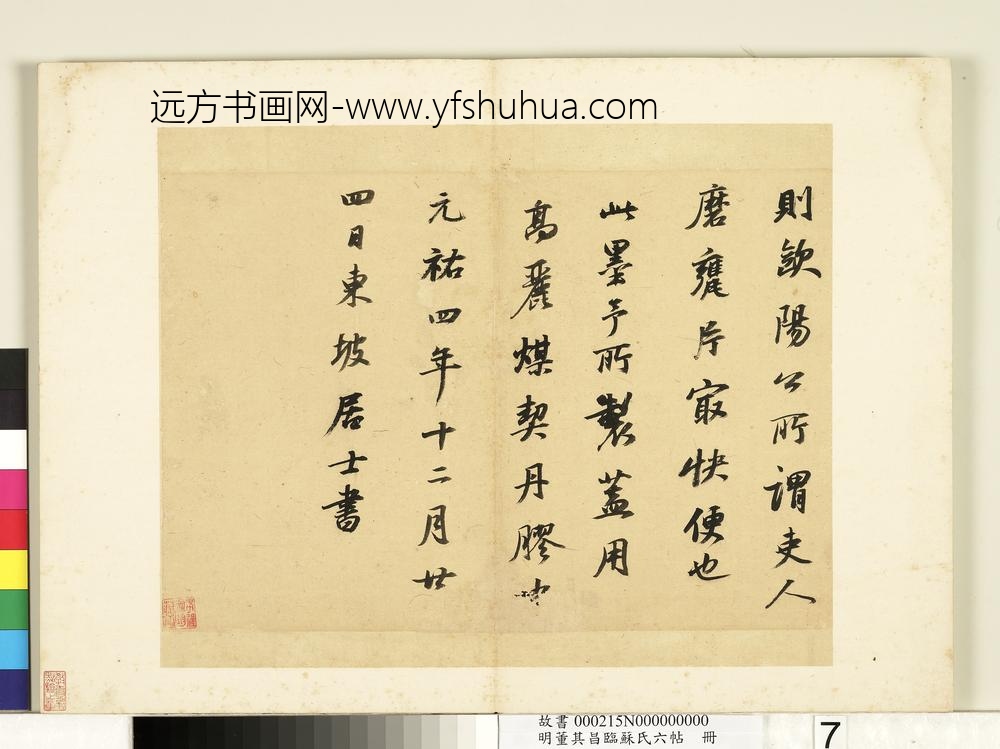 远方书画网-www.yfshuhua.com
則歙陽公所謂吏人
磨甕片㝡快便也
此墨予所製蓋用
高麗煤契丹膠也
元祐四年十二月廿
四日東坡居士書
故書 000215N000000000
明董其昌臨蘇氏六帖 冊
7